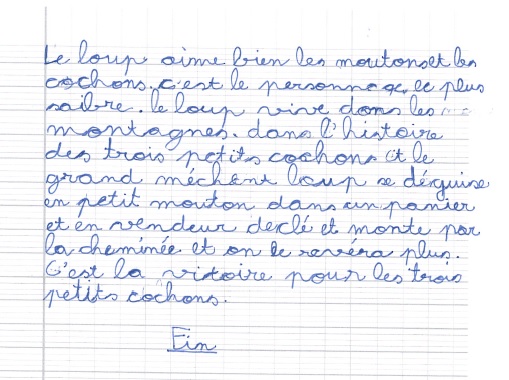 Le loup aime bien les moutons et les
cochons. c'est le personnage le plus
saibre. le loup vive dans les
montagnes. dans l'histoire
des trois petits cochons et le
grand méchant loup se déguise
en petit mouton dans un panier
et en vendeur declé et monte par
la cheminée et on le revéra plus.
C'est la victoire pour les trois
petits cochons.
Fin